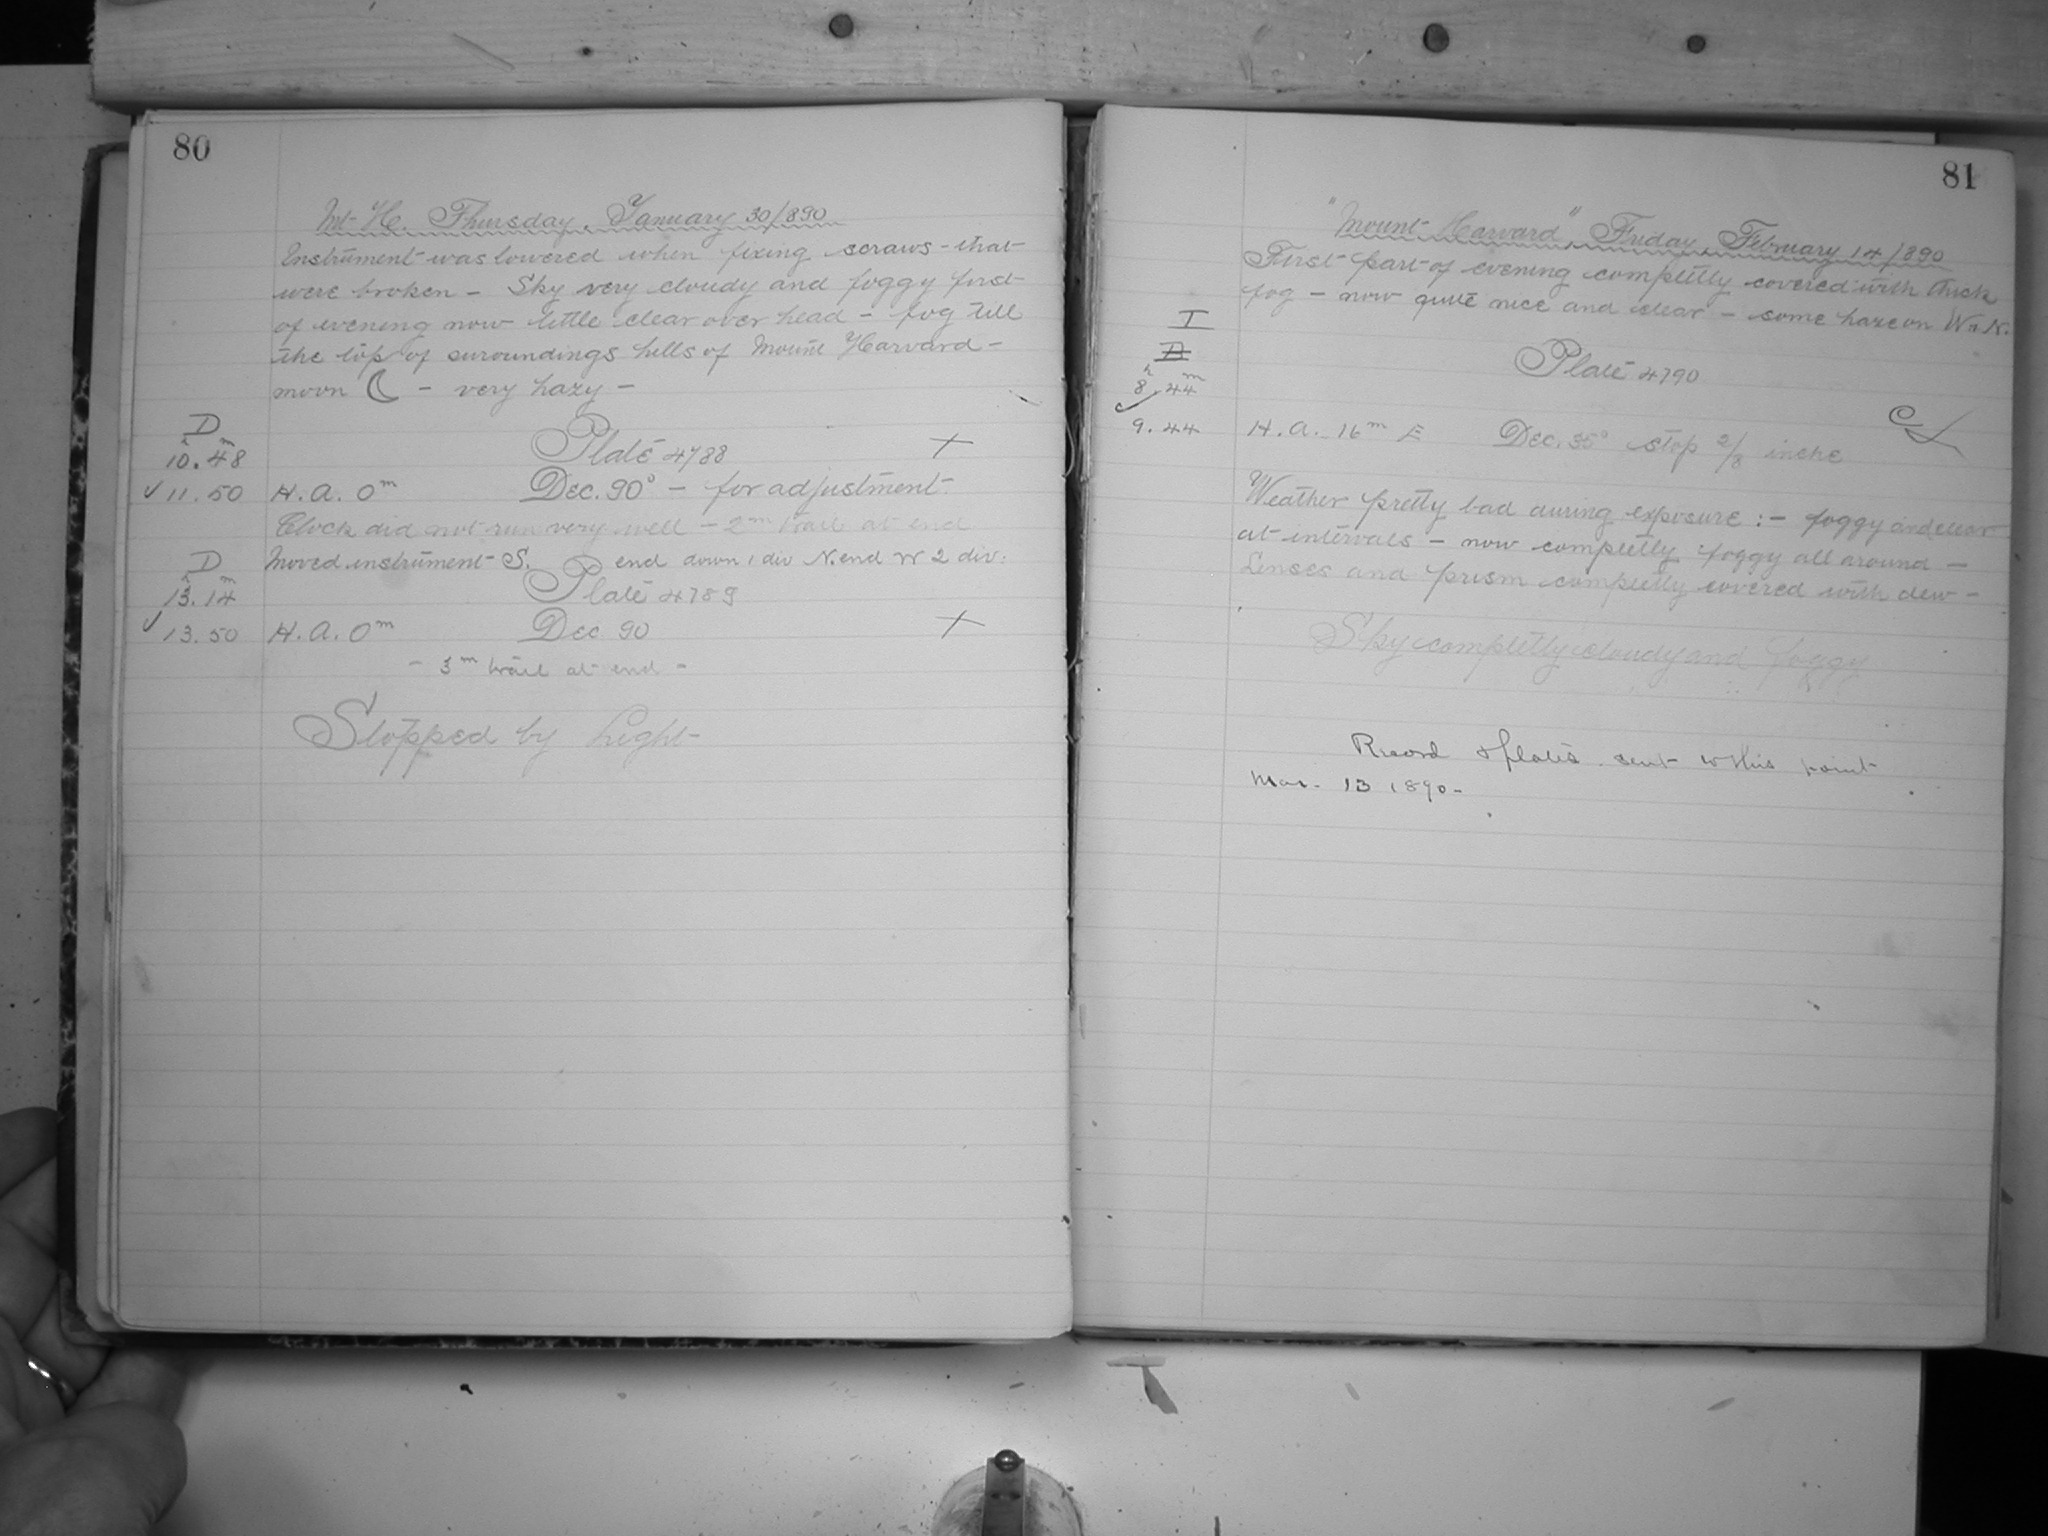 80
Mt. H. Thursday, January 30/890
Instrument was lowered when fixing scraws - that
were broken - Sky very cloudy and foggy first
of evening now little clear over head - fog till
the top of suroundings hills of Mount Harvard -
moon ☾ - very hazy -
D
10h.48m Plate 4788 X
✓ 11.50 H.A. 0m Dec. 90° - for adjustment.
Clock did not run very well - 2m trail at end
D Moved instrument S. end down 1 div N. end W 2 div.
13h.14m Plate 4789
✓ 13.50 H.A. 0m Dec 90 X
- 3m trail at end -
Stopped by Light
81
"Mount Harvard", Friday, February 14/890
First part of evening completly covered with thick
fog - now quite nice and clear - some haze on W & N.
I
Plate 4790
8h.44m
✓ 9.44 H.A. 16m E Dec. 35° stop 2/8 inche
Weather pretty bad during exposure :- foggy and clear
at intervals - now completly foggy all around -
Lenses and prism completly covered with dew -
Sky completly cloudy and foggy
Record & plates sent to this point
Mar. 13 1890 -